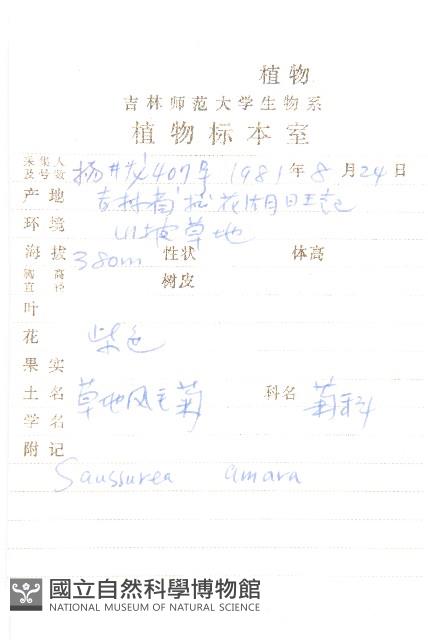 植物
吉林师范大学生物系
植物标本室
采集人及号数 杨井发407号 1981年8月24日
产地 吉林省松花湖
环境 山坡草地
海拔 380m 性状 体高
胸高直径 树皮
叶
花 紫色
果实
土名 草地风毛菊 科名 菊科
学名
附记
Saussurea amara
國立自然科學博物館
NATIONAL MUSEUM OF NATURAL SCIENCE